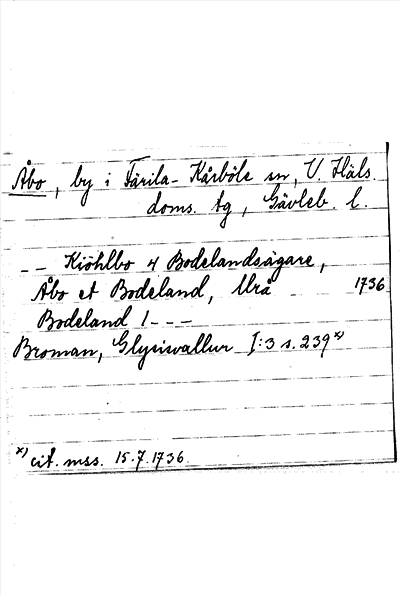 Åbo, by i Färila-Kårböle sn, V. Häls.
doms. tg, Gävleb. l.
-- Kiöhlbo 4 Bodelandsägare,
Åbo et Bodeland, Urå - 1736
Bodeland 1---
Broman, Glysisvallur I:3 s. 239 x)
x) cit. mss. 15.7.1736.